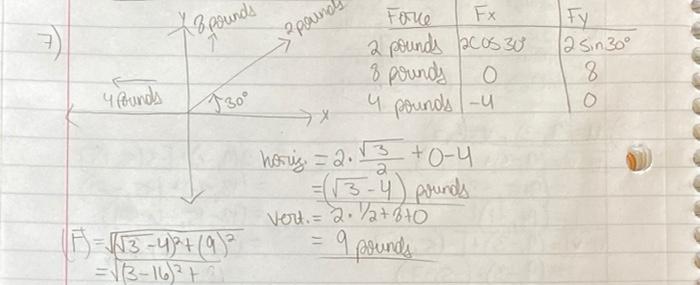 7)
Y
8 pounds
2 pounds
4 pounds
30°
X
Force Fx Fy
2 pounds 2cos30° 2sin30°
8 pounds 0 8
4 pounds -4 0
horiz. = 2·√3/2 + 0-4
= (√3-4) pounds
vert. = 2·1/2+8+0
= 9 pounds
|F| = √(√3-4)²+(9)²
= √(3-16)²+